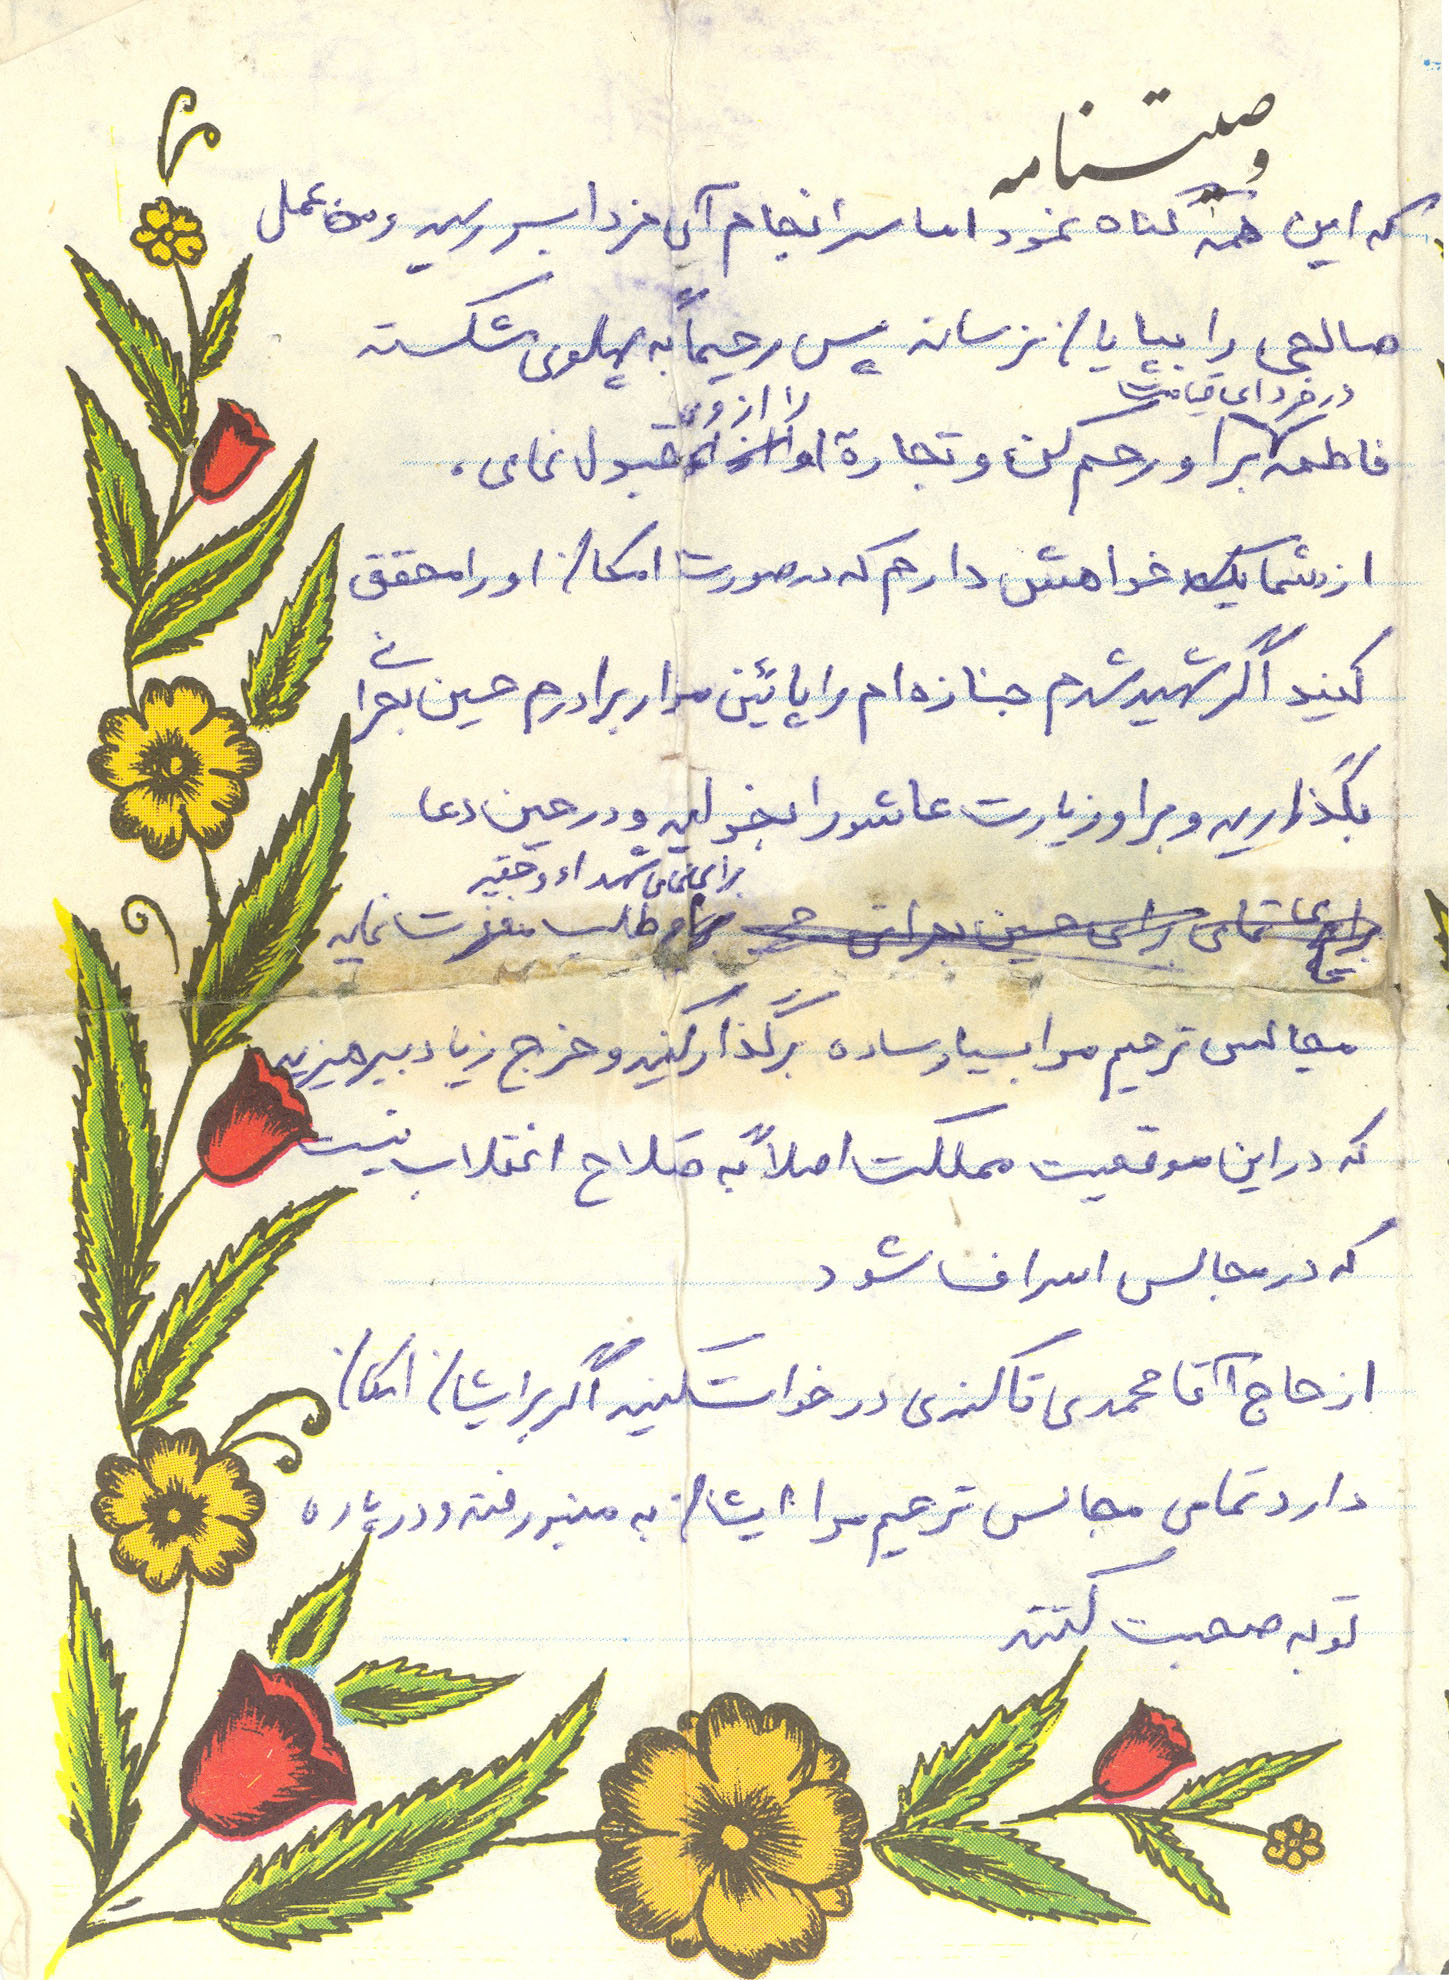 وصیتنامه
که این همه گناه نمود اما سرانجام آن فردا بسر رسید و من عمل
صالحی را بپایان نرسانه پس رحیماً به پهلوی شکسته
در فردای قیامت
را از وی
فاطمه برا و رحم کن و تجارة او قبول نمای .
از شما یک خواهش دارم که در صورت امکان او را محقق
کنید اگر شهید شدم جنازه ام را پائین مزار برادرم حسین بحرانی
بگذارید و برا و زیارت عاشورا بخوانید و در حین دعا
برای تمامی شهداء و حقیر
طلب مغفرت نمایید
مجالس ترحیم مرا بسیار ساده برگذار کنید و خرج زیاد بپرهیزید
که در این موقعیت مملکت اصلاً به صلاح انقلاب نیست
که در مجالس اسراف شود
از حاج آقا محمدی تاکندی درخواست کنید اگر برایشان امکان
دارد تمامی مجالس ترحیم مرا ایشان به منبر رفته و درباره
توبه صحبت کنند